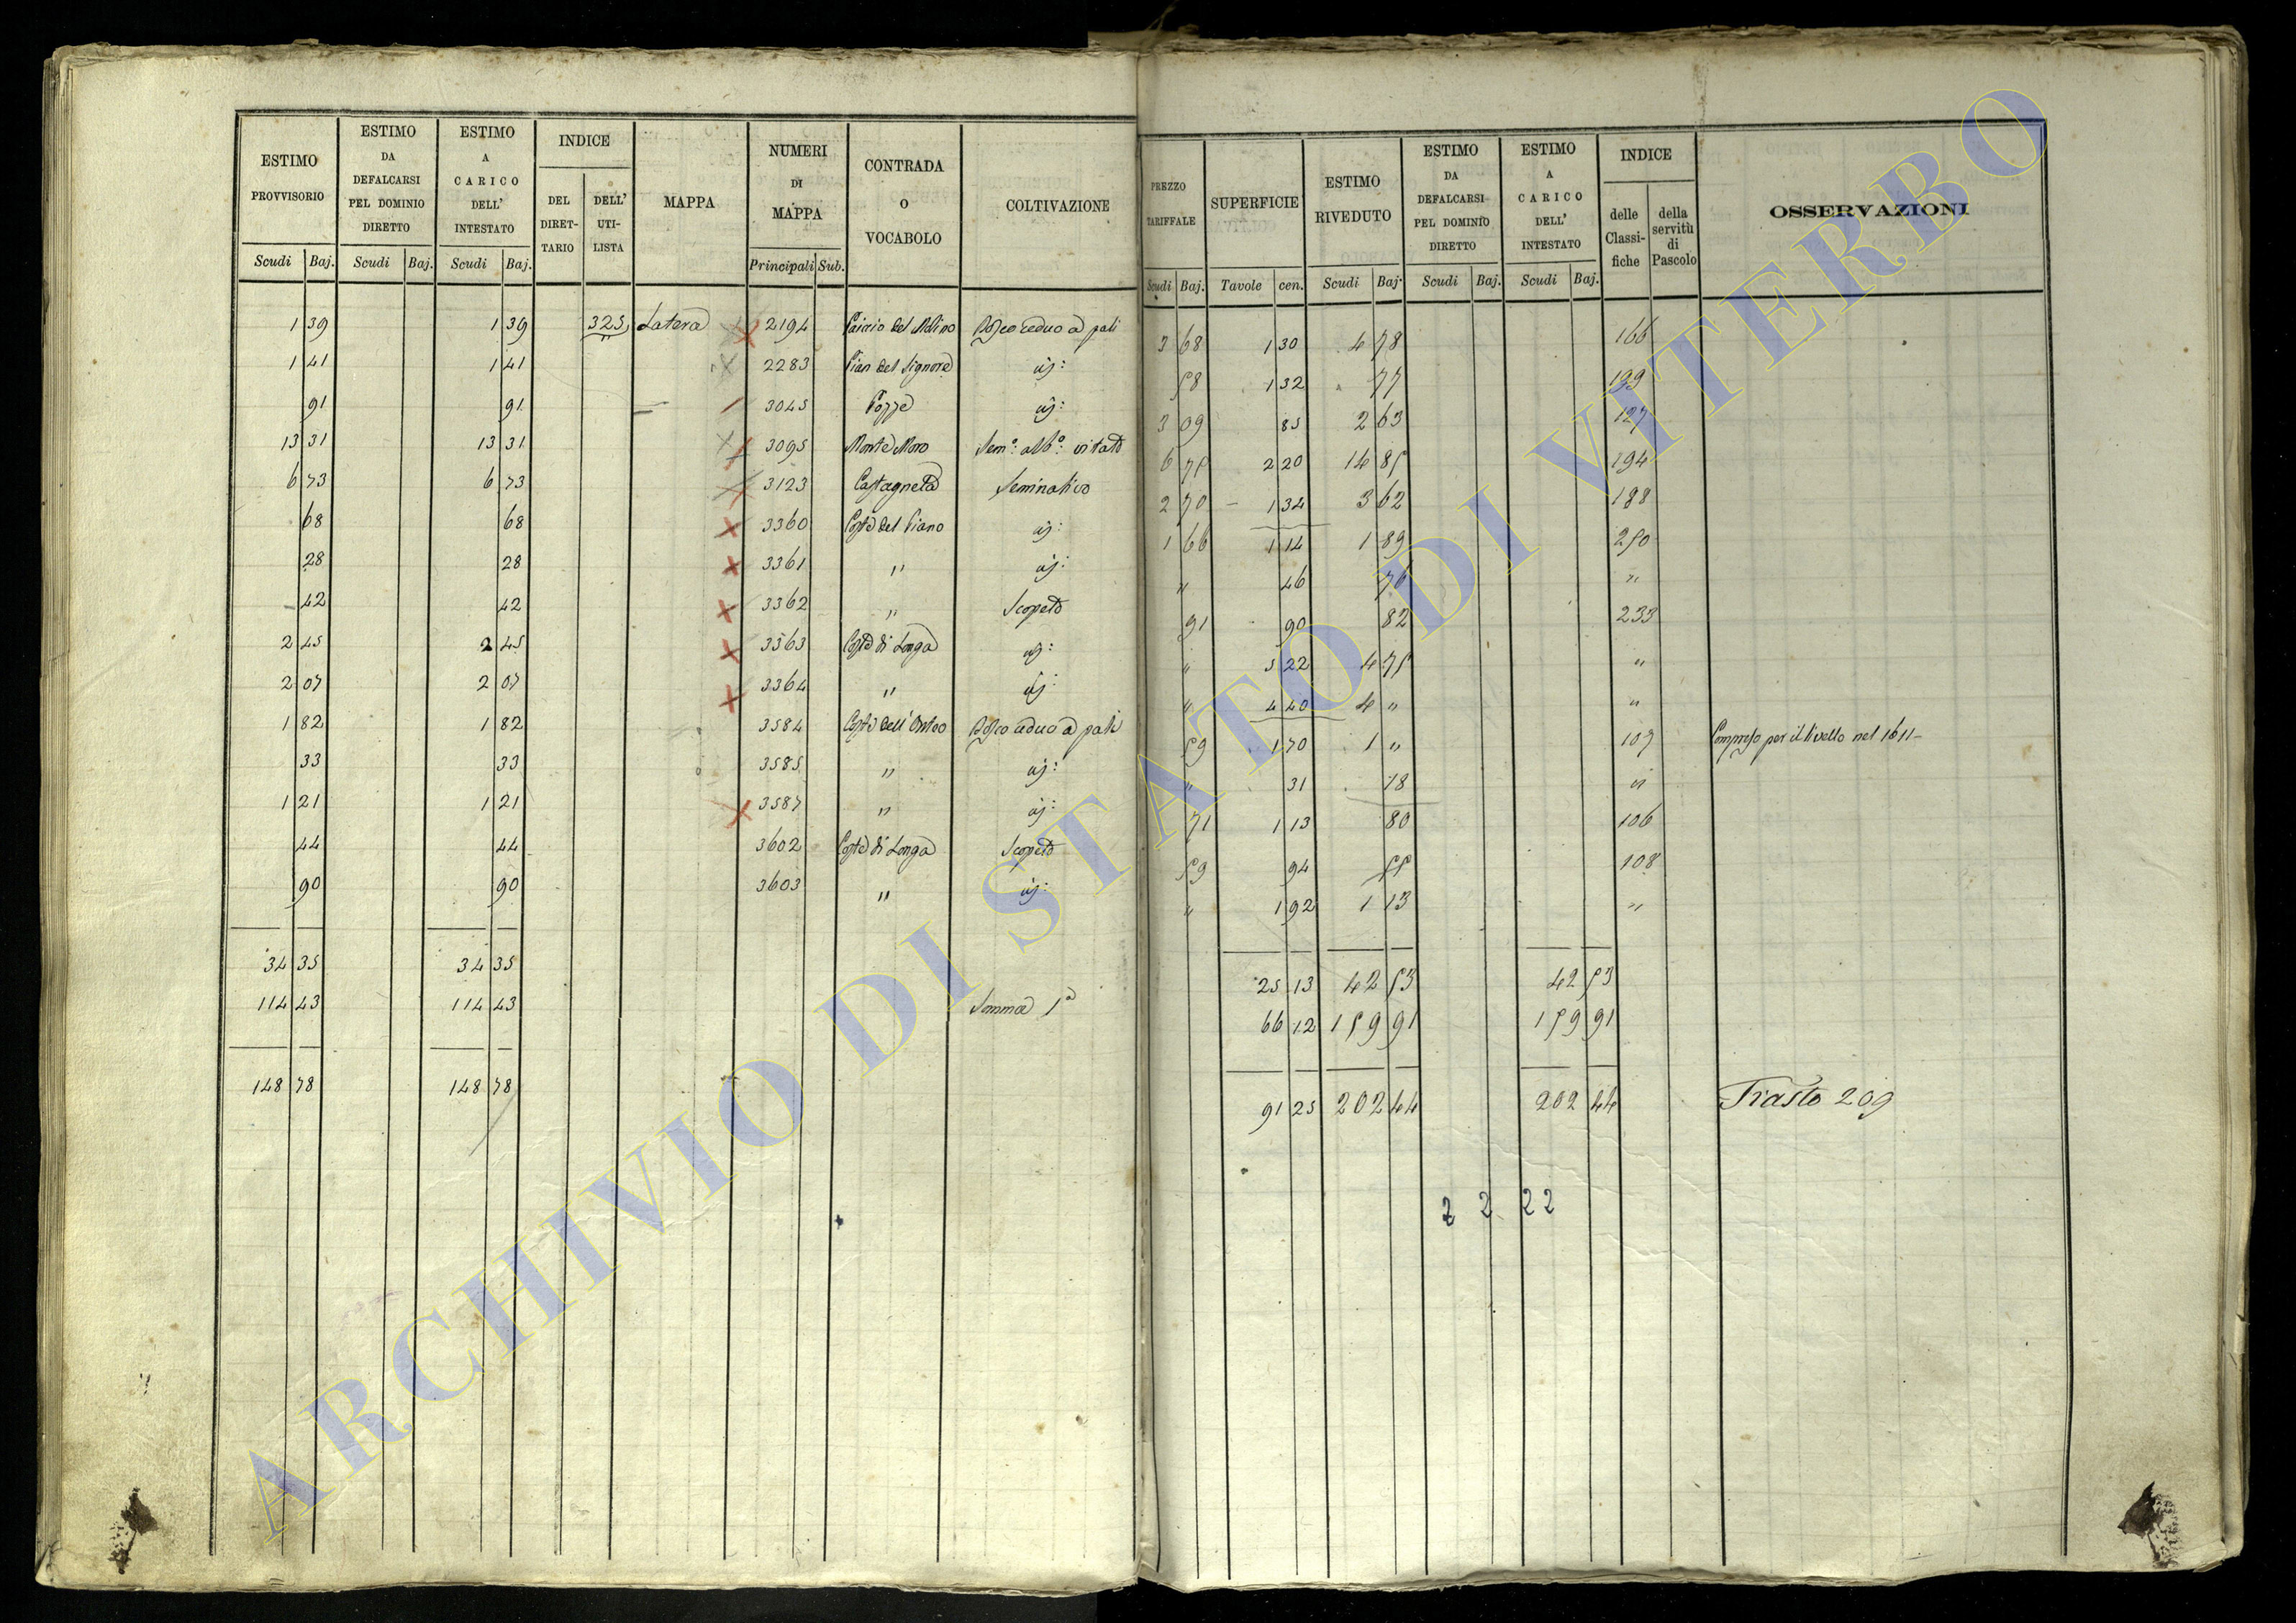 ESTIMO PROVVISORIO | ESTIMO DA DEFALCARSI PEL DOMINIO DIRETTO | ESTIMO A CARICO DELL' INTESTATO | INDICE DEL DIRETTARIO | DELL' UTILISTA | MAPPA | NUMERI DI MAPPA | CONTRADA O VOCABOLO | COLTIVAZIONE | PREZZO TARIFFALE | SUPERFICIE | ESTIMO RIVEDUTO | ESTIMO DA DEFALCARSI PEL DOMINIO DIRETTO | ESTIMO A CARICO DELL' INTESTATO | INDICE delle Classifiche | della servitù di Pascolo | OSSERVAZIONI
Scudi Baj. | Scudi Baj. | Scudi Baj. | Principali Sub. | Scudi Baj. | Tavole cen. | Scudi Baj. | Scudi Baj. | Scudi Baj.
1 39 | 1 39 | 325 | Latera | 2194 | del Molino | Bosco ceduo a pali | 3 68 | 1 30 | 4 78 | 166
1 41 | 1 41 | 2283 | Pian del Signore | id: | 58 | 1 32 | 77 | 199
91 | 91 | 3045 | Pozze | id: | 3 09 | 85 | 2 63 | 127
13 31 | 13 31 | 3095 | Monte Moro | Sem.º alb.º vitato | 6 75 | 2 20 | 14 85 | 194
6 73 | 6 73 | 3123 | Castagneta | Seminativo | 2 70 | 1 34 | 3 62 | 188
68 | 68 | 3360 | Coste del Piano | id: | 1 66 | 1 14 | 1 89 | 250
28 | 28 | 3361 | " | id: | " | 46 | 76 | "
42 | 42 | 3362 | " | Scopeto | 91 | 90 | 82 | 233
2 45 | 2 45 | 3363 | Coste di Longa | id: | " | 5 22 | 4 75 | "
2 07 | 2 07 | 3364 | " | id: | " | 4 40 | 4 " | "
1 82 | 1 82 | 3584 | Coste dell' | Bosco ceduo a pali | 59 | 1 70 | 1 " | 107 | Compreso per il livello nel 1611
33 | 33 | 3585 | " | id: | " | 31 | 18 | "
1 21 | 1 21 | 3587 | " | id: | 71 | 1 13 | 80 | 106
44 | 44 | 3602 | Coste di Longa | Scopeto | 59 | 94 | 55 | 108
90 | 90 | 3603 | " | id: | " | 1 92 | 1 13 | "
34 35 | 34 35 | 25 13 | 42 53 | 42 53
114 43 | 114 43 | Somma 1ª | 66 12 | 159 91 | 159 91
148 78 | 148 78 | 91 25 | 202 44 | 202 44 | 209
2 2 22
ARCHIVIO DI STATO DI VITERBO